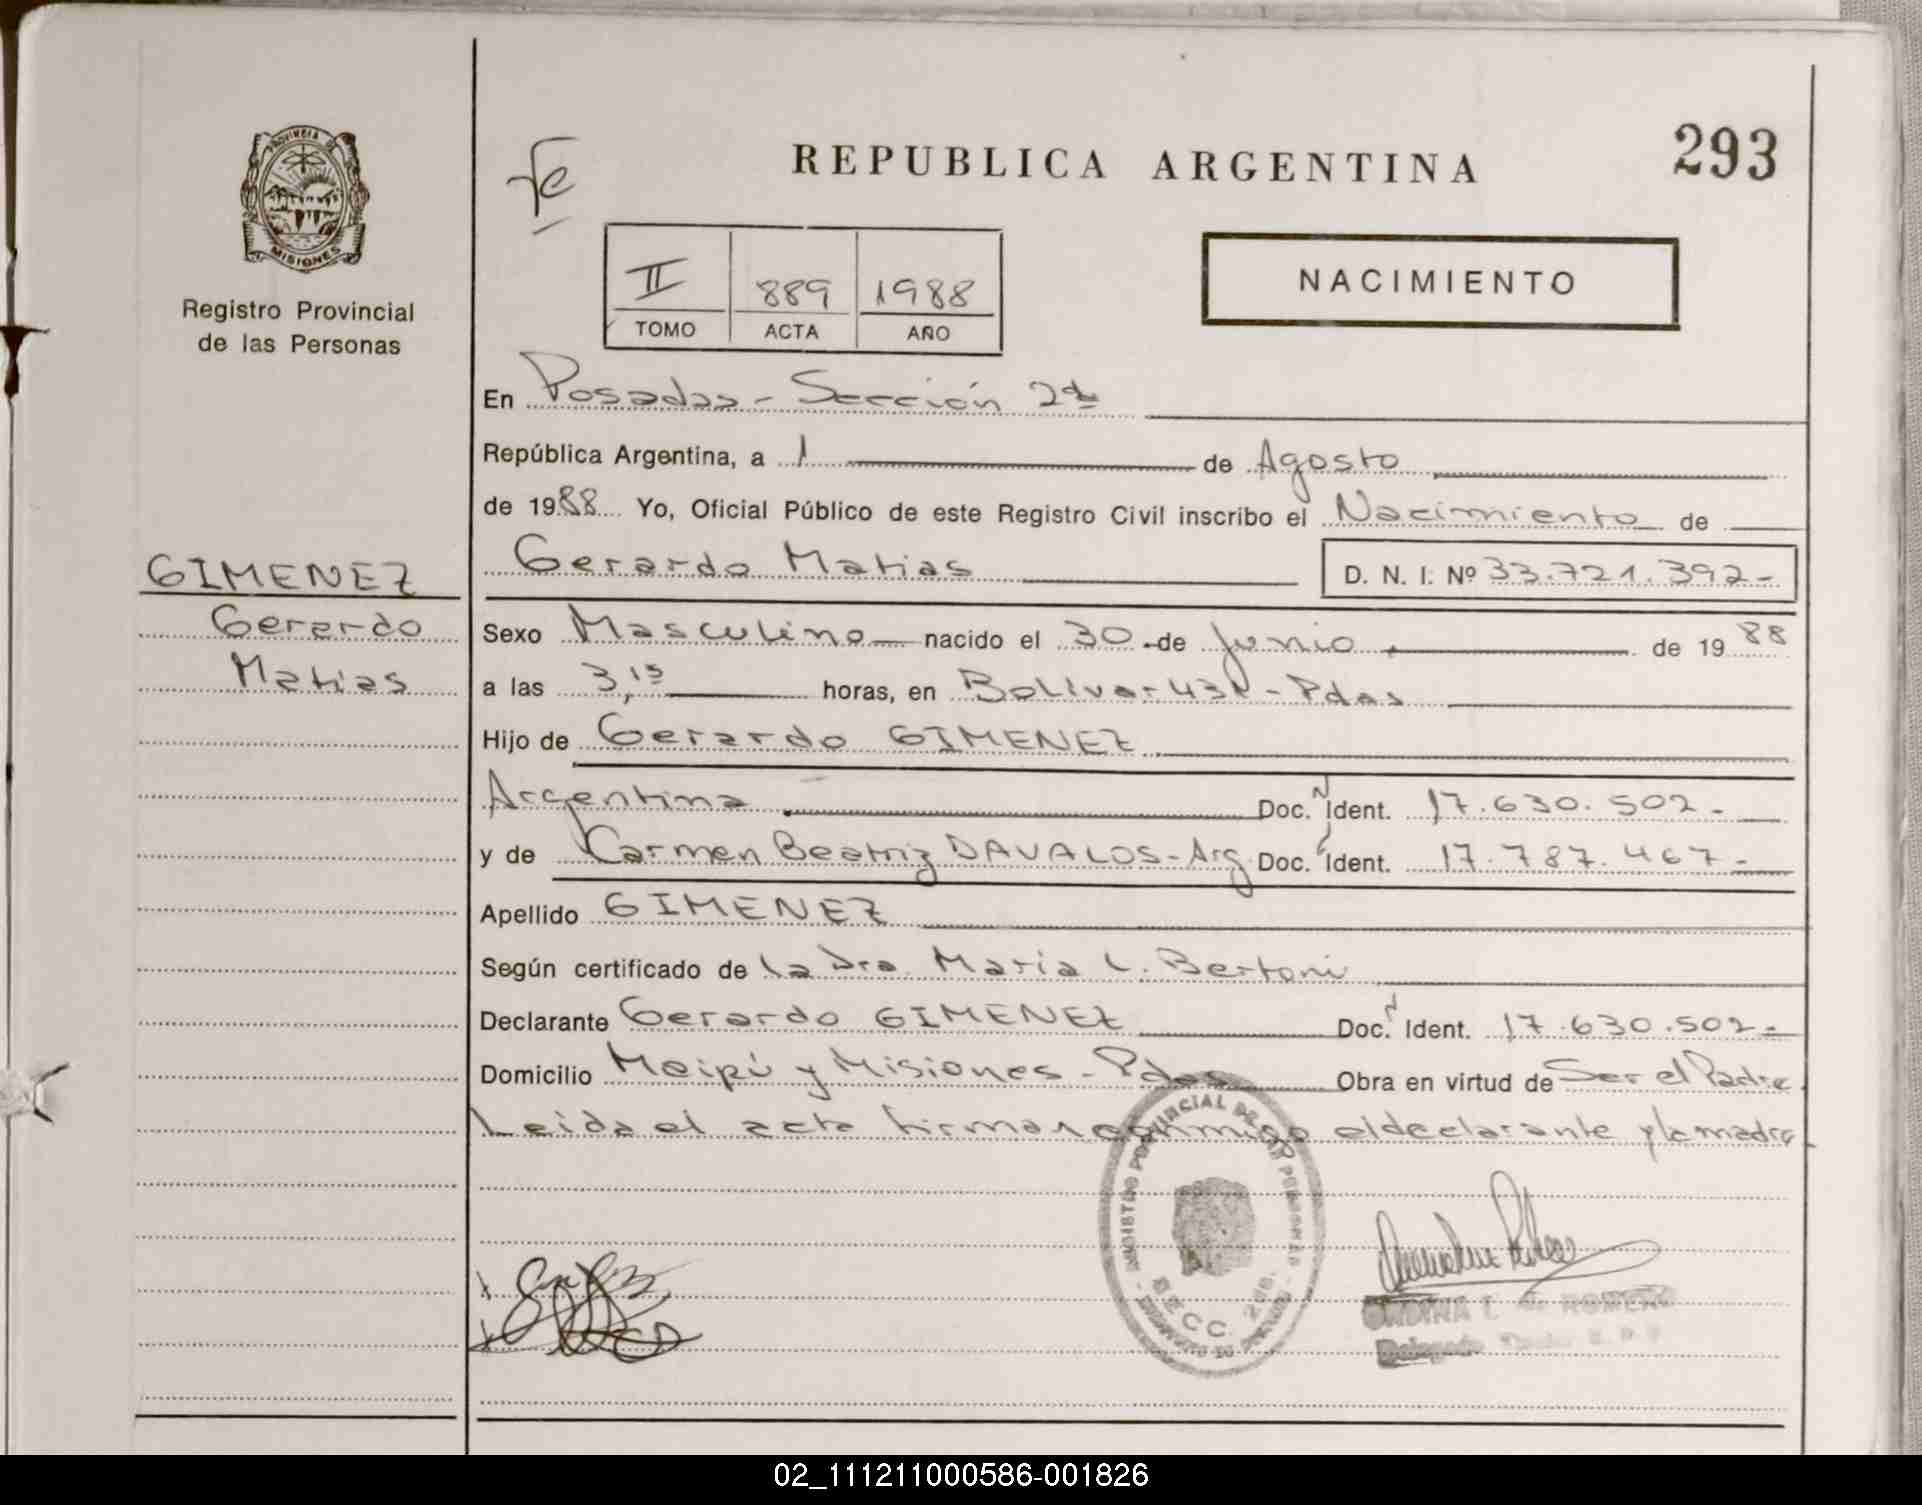 PROVINCIA DE
MISIONES
Registro Provincial
de las Personas
GIMENEZ
Gerardo
Matias
Fe
REPUBLICA ARGENTINA
293
II 889 1988
TOMO ACTA AÑO
NACIMIENTO
En Posadas - Sección 2da
República Argentina, a 1 de Agosto
de 1988 Yo, Oficial Público de este Registro Civil inscribo el Nacimiento de
Gerardo Matias D. N. I. Nº 33.721.392-
Sexo Masculino nacido el 30 de Junio de 1988
a las 3,15 horas, en Bolívar 431 - Pdas
Hijo de Gerardo GIMENEZ
Argentina Doc. N Ident. 17.630.502-
y de Carmen Beatriz DAVALOS - Arg Doc. Ident. 17.787.467-
Apellido GIMENEZ
Según certificado de la Dra. Maria L. Bertoni
Declarante Gerardo GIMENEZ Doc. N Ident. 17.630.502-
Domicilio Maipú y Misiones - Pdas Obra en virtud de Ser el Padre
Leida el acta firman conmigo el declarante y la madre
SECC. 2da.
ROMERO
02_111211000586-001826